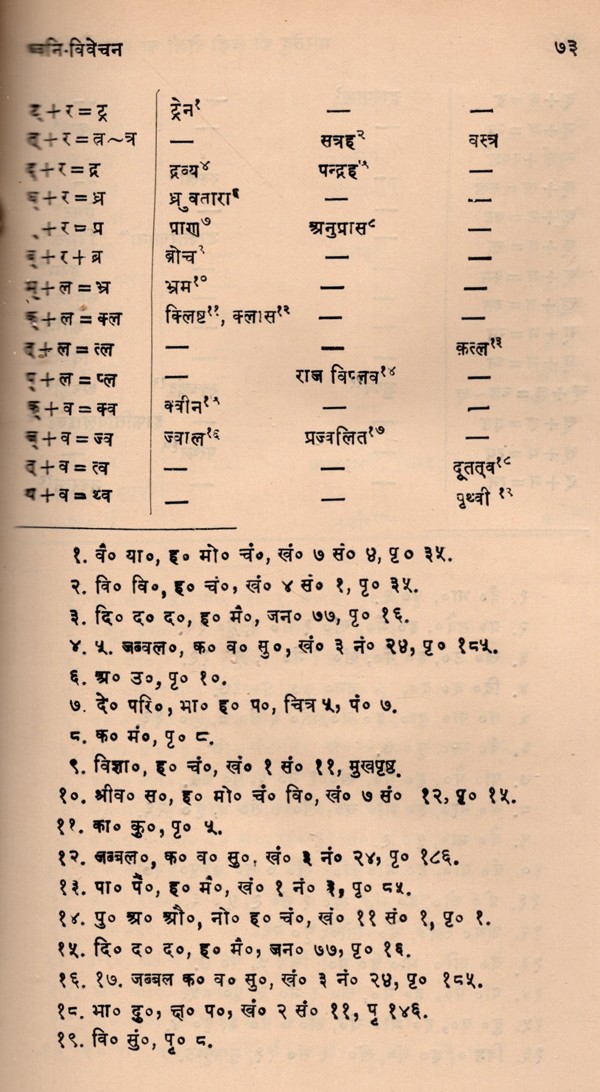 ध्वनि-विवेचन ७३
ट्+र=ट्र ट्रेन१ — —
त्+र=त्र~त्र — सत्रह२ वस्त्र
द्+र=द्र द्रव्य४ पन्द्रह५ —
ध्+र=ध्र ध्रुवतारा६ — —
+र=प्र प्राण७ अनुप्रास८ —
ब्+र+ब्र ब्रोच९ — —
भ्+ल=भ्र भ्रम१० — —
क्+ल=क्ल क्लिष्ट११, क्लास१२ — —
त्+ल=त्ल — — क़त्ल१३
प्+ल=प्ल — राज विप्लव१४ —
क्+व=क्व क्वीन१५ — —
ज्+व=ज्व ज्वाल१६ प्रज्वलित१७ —
त्+व=त्व — — दूतत्व१८
थ+व=थ्व — — पृथ्वी १९
१. वै० या०, ह० मो० चं०, खं० ७ सं० ४, पृ० ३५.
२. वि० वि०, ह० चं०, खं० ४ सं० १, पृ० ३५.
३. दि० द० द०, ह० मै०, जन० ७७, पृ० १६.
४. ५. जब्बल०, क० व० सु०, खं० ३ नं० २४, पृ० १८५.
६. अ० उ०, पृ० १०.
७. दे० परि०, भा० ह० प०, चित्र ५, पं० ७.
८. क० मं०, पृ० ८.
९. विज्ञा०, ह० चं०, खं० १ सं० ११, मुखपृष्ठ.
१०. श्रीव० स०, ह० मो० चं० वि०, खं० ७ सं० १२, पृ० १५.
११. का० कु०, पृ० ५.
१२. जब्बल०, क० व० सु०, खं० ३ नं० २४, पृ० १८६.
१३. पा० पै०, ह० मै०, खं० १ नं० ३, पृ० ८५.
१४. पु० अ० श्रौ०, नो० ह० चं०, खं० ११ सं० १, पृ० १.
१५. दि० द० द०, ह० मै०, जन० ७७, पृ० १६.
१६. १७. जब्बल क० व० सु०, खं० ३ नं० २४, पृ० १८५.
१८. भा० दु०, ह० प०, खं० २ सं० ११, पृ १४६.
१९. वि० सुं०, पृ० ८.